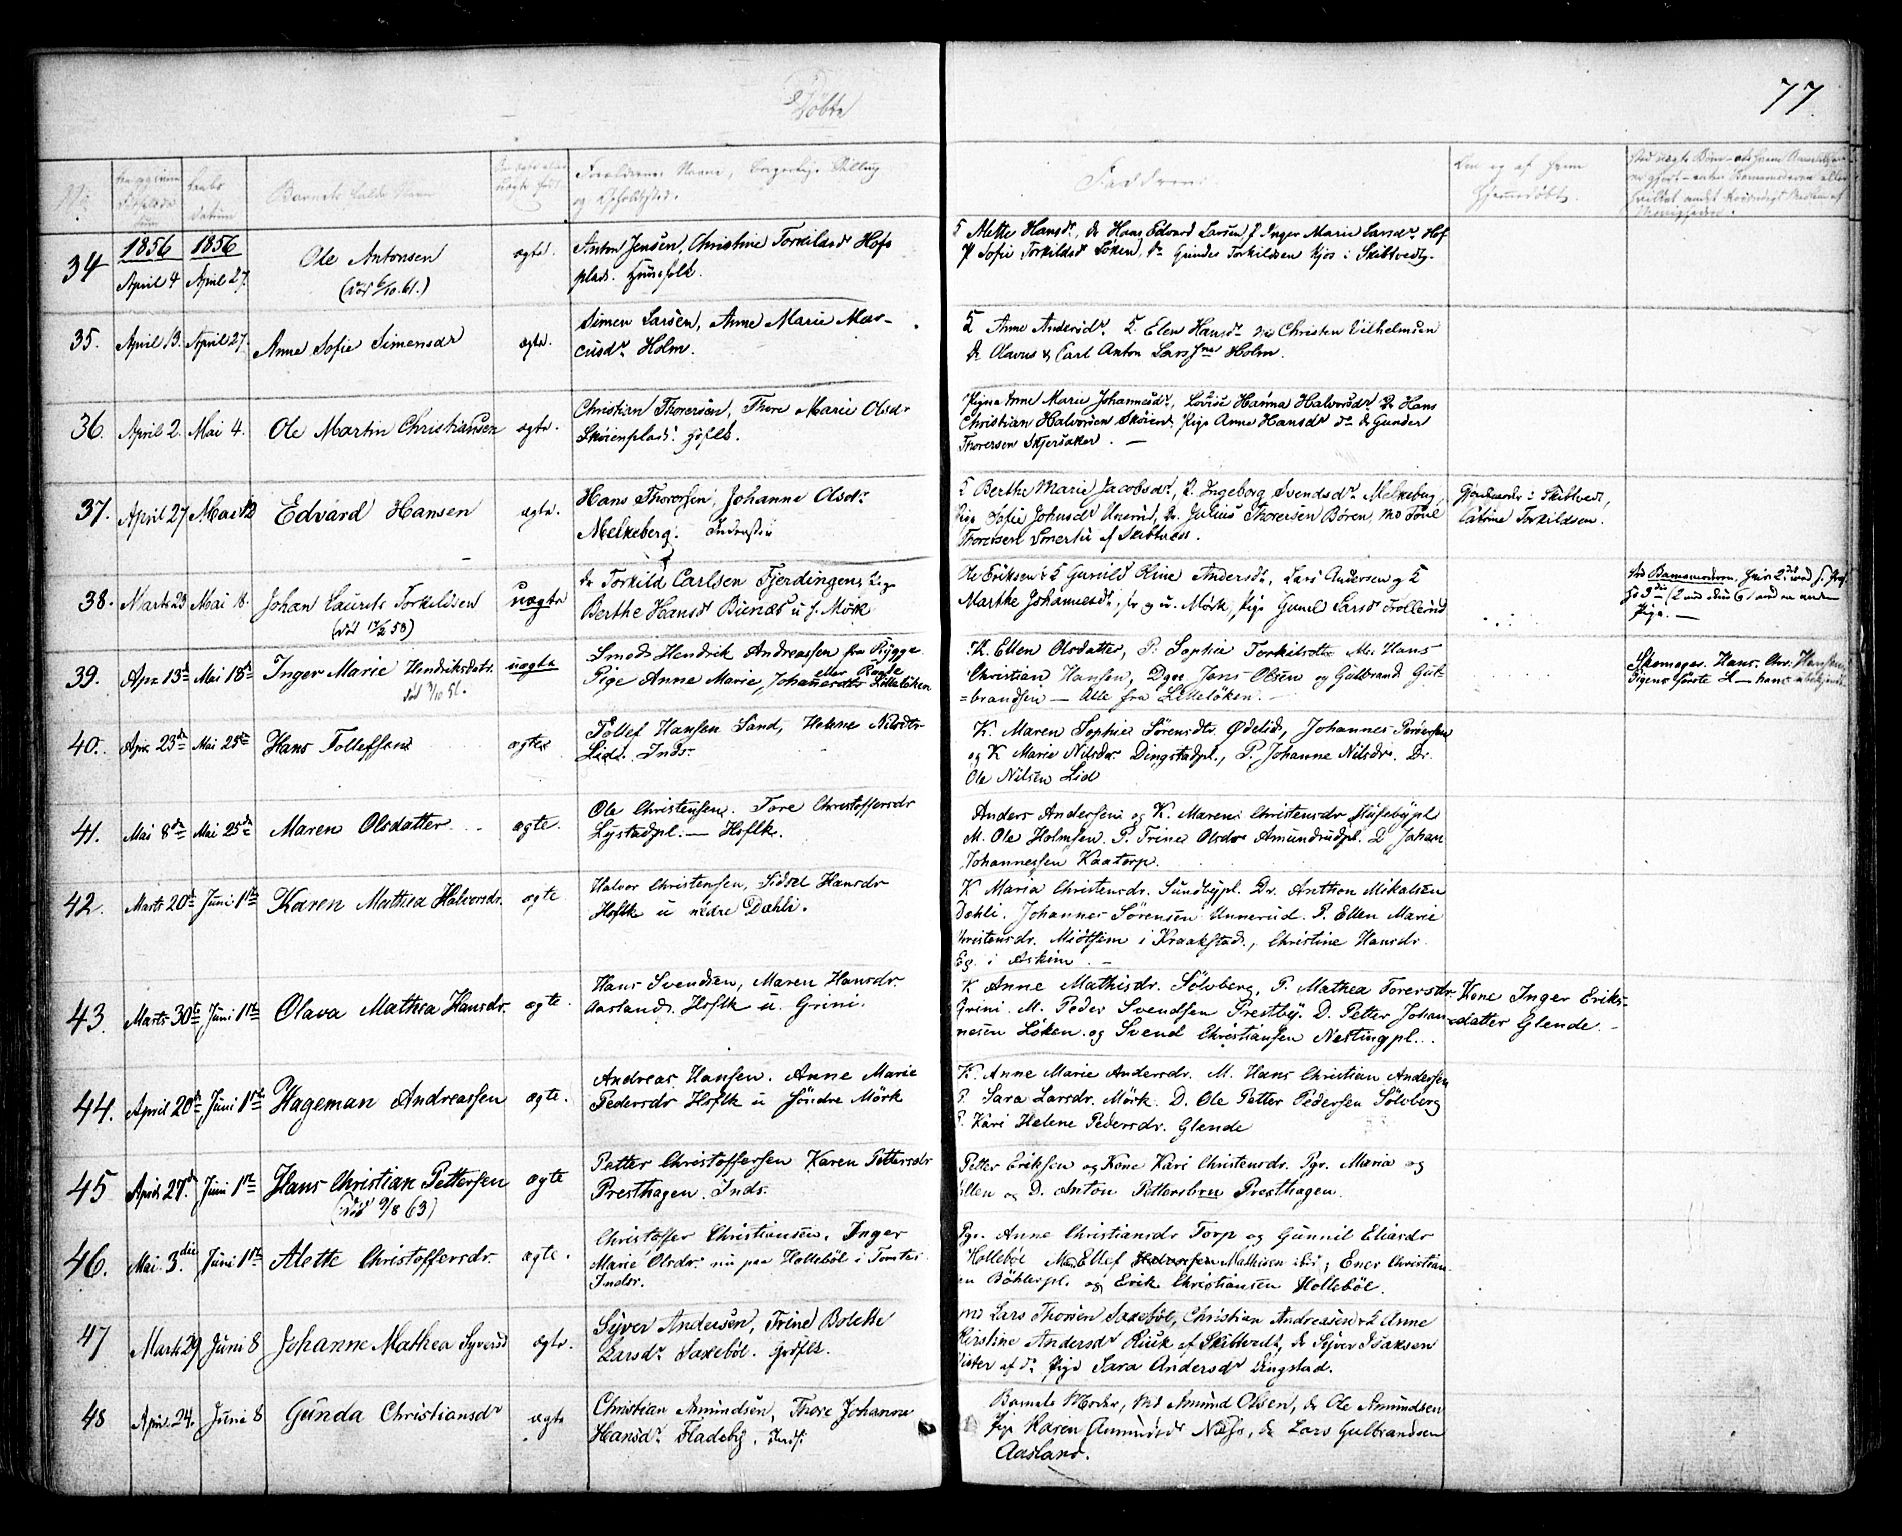 Döbte
77.
No.
Barnets fulde Navn
Forældrenes Navne, borgerlige Stilling
og Opholdsted.
Faddere
Om og af hvem
hjemmedöbt.
34
1856
April 4
1856
April 27.
Ole Antonsen
(död 6/10. 61.)
ægte.
Anton Jensen, Christine Torkilsdr Hofs
plads. Huusfolk.
Mette Hansdr, Dr Hans Edvard Larsen, P Inger Marie Larsdr Hof
P Sofie Torkildsdr Löken, Dr Gunder Torkildsen Kjos i Skibtvedt.
35.
April 13.
April 27.
Anne Sofie Simensdr
ægte.
Simen Larsen, Anne Marie Mar-
cusdr Holm.
Anne Andersdr. Elen Hansdr Md Christen Vilhelmsen
Dr Olavus & Carl Anton Lars Sne Holm.
36.
April 2.
Mai 4.
Ole Martin Christiansen
ægte.
Christian Thoresen, Thore Marie Olsdr
Skoienplads.
Pigen Anne Marie Johannesdr, Lovise Hanna Halvorsdr Dr Hans
Christian Halvorsen Skoien. Pige Anne Hansdr Dr Gunder
Thoresen Skjersaker. —
37.
April 27
Mai 12
Edvard Hansen
ægte.
Hans Thoresen, Johanne Olsdr
Melkeberg. Inderster
Berthe Marie Jacobsdr, P. Ingeborg Svendsdr Melkeberg,
Pige Sofie Johnsdr Unerud, Dr. Julius Thoresen Bören, Md
Thoresen af Skibtvedt.
Gjordemoder i Skibtvedt,
Catrine Torkildsen.
38.
Marts 23
Mai 18.
Johan Laurits Torkildsen
(död 17/2 58)
uægte
Dr Torkild Carlsen Fjerdingen, Pige
Berthe Hansdr Bienæs u S. Mörk
Ole Eriksen & Gunild Kine Andersdr, Lars Andersen og
Marthe Johannesdr, Mörk, Pige Gunil Larsdr Trollerud
Barnemoderen.
Pige. —
39.
Apr. 13de
Mai 18de
Inger Marie Hendriksdatr.
uægte
Smeds Hendrik Andreassen fra Rygge
eller Raade
Pige Anne Marie Johannesdtr Lilleløken
K. Ellen Olsdatter, P. Sophie Torkilsdtr Md. Hans
Christian Hansen, Dgre Jens Olsen og Gulbrand Gul-
=brandsen — Alle fra Lilleløken. —
Skomager. Hans Chr. Hansen
Pigens förste
40.
Apr. 23de
Mai 25de
Hans Tolleffsen
ægtes
Tollef Hansen Sand, Helene Nilsdtr
Lid. Inds.
K. Maren Sophie Sörensdtr. Ødelid, Johannes
og K Marie Nilsdtr. Dingstadpl., P. Johanne Nilsdr. Dr.
Ole Nilsen Lid
41.
Mai 8de
Mai 25de
Maren Olsdatter
ægte.
Ole Christensen. Tore Christoffersdr
Lystadpl. — Hsflk.
Anders Andersen og K. Maren Christensdr Husebypl
M. Ole Holmsen. P. Trine Olsdtr Amundrudpl. D Johan
Johannessen Kaatorp.
42.
Marts 20de
Juni 1ste
Karen Mathea Halversdr.
ægte
Halvor Christensen, Sidsel Hansdr
Hsflk u nedre Dæhli.
K Maria Christensdr. Sundbypl. Dr. Anthon Mikalsen
Dæhli. Johannes Sörensen Unnerud. P. Ellen Marie
Christensdr. Midtsem i Kraakstad, Christine Hansdr.
Eg. i Askim. —
43.
Marts 30te
Juni 1ste
Olava Mathea Hansdr.
ægte.
Hans Svendsen, Maren Hansdr
Aasland. Hsflk u. Grini.
K Anne Mathisdr. Sölvberg, P. Mathea Torersdr.
Grini. M. Peder Svendsen Prestby. D. Petter Johan-
nesen Löken og Svend Christiansen Næstingpl..
Kone Inger Eriks-
datter Glende. —
44.
April 20de
Juni 1ste
Hageman Andreassen
ægte.
Andreas Hansen. Anne Marie
Pedersdr Hsflk u Söndre Mörk
K. Anne Marie Andersdr. M. Hans Christian Andersen
P. Sara Larsdr. Mörk. D. Ole Petter Pedersen Sölvberg
P. Kari Helene Pedersdr. Glende
45
April 27de
Juni 1ste
Hans Christian Pettersen
(död 9/8 63)
ægte
Petter Christoffersen Karen Pettersdr
Presthagen. Inds.
Petter Eriksen og Kone Kari Christensdr. Pgr. Maria og
Ellen og D. Anton Pettersbrn Presthagen.
46.
Mai 3die
Juni 1ste
Alette Christoffersdr.
ægte.
Christoffer Christiansen, Inger
Marie Olsdr. nu paa Holleböl i Tomter
Indsr.
Pgr. Anne Christiansdr Torp og Gunnil Eliasdr
Holleböl Md Ellef Halvorsen Mathisen ibd; Ener Christian-
sen Böhlerpl. og Erik Christiansen Holleböl.
47
Marts 29
Juni 8
Johanne Mathea Syversd
ægte.
Syver Andersen, Trine Bolette
Larsdr Saxeböl.
Md Lars Thoresen Saxeböl, Christian Andreassen & Anne
Kirstine Andersdr Ruik af Skibtvedt, Dr Syver Isaksen
Pige Sara Andersdr Dingstad.
48
April 24.
Juni 8
Gunda Christiansdr
ægte
Christian Amundsen, Thore Johanne
Hansdr Fladeby. Inds.
Barnets Moder, Md Amund Olsen, Dr Ole Amundsen
Pige Karen Amundsdr Næss, Dr Lars Gulbrandsen
Aasland.